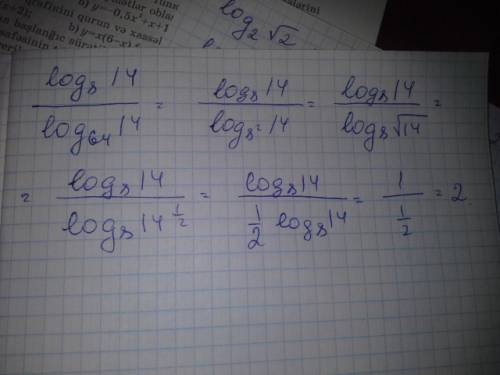 b) y=-0,5x²+x+1
b) y=x(6-x)
log₂ √2
log₈ 14 / log₆₄ 14 = log₈ 14 / log₈² 14 = log₈ 14 / log₈ √14 =
= log₈ 14 / log₈ 14^(1/2) = log₈ 14 / (1/2 log₈ 14) = 1 / (1/2) = 2